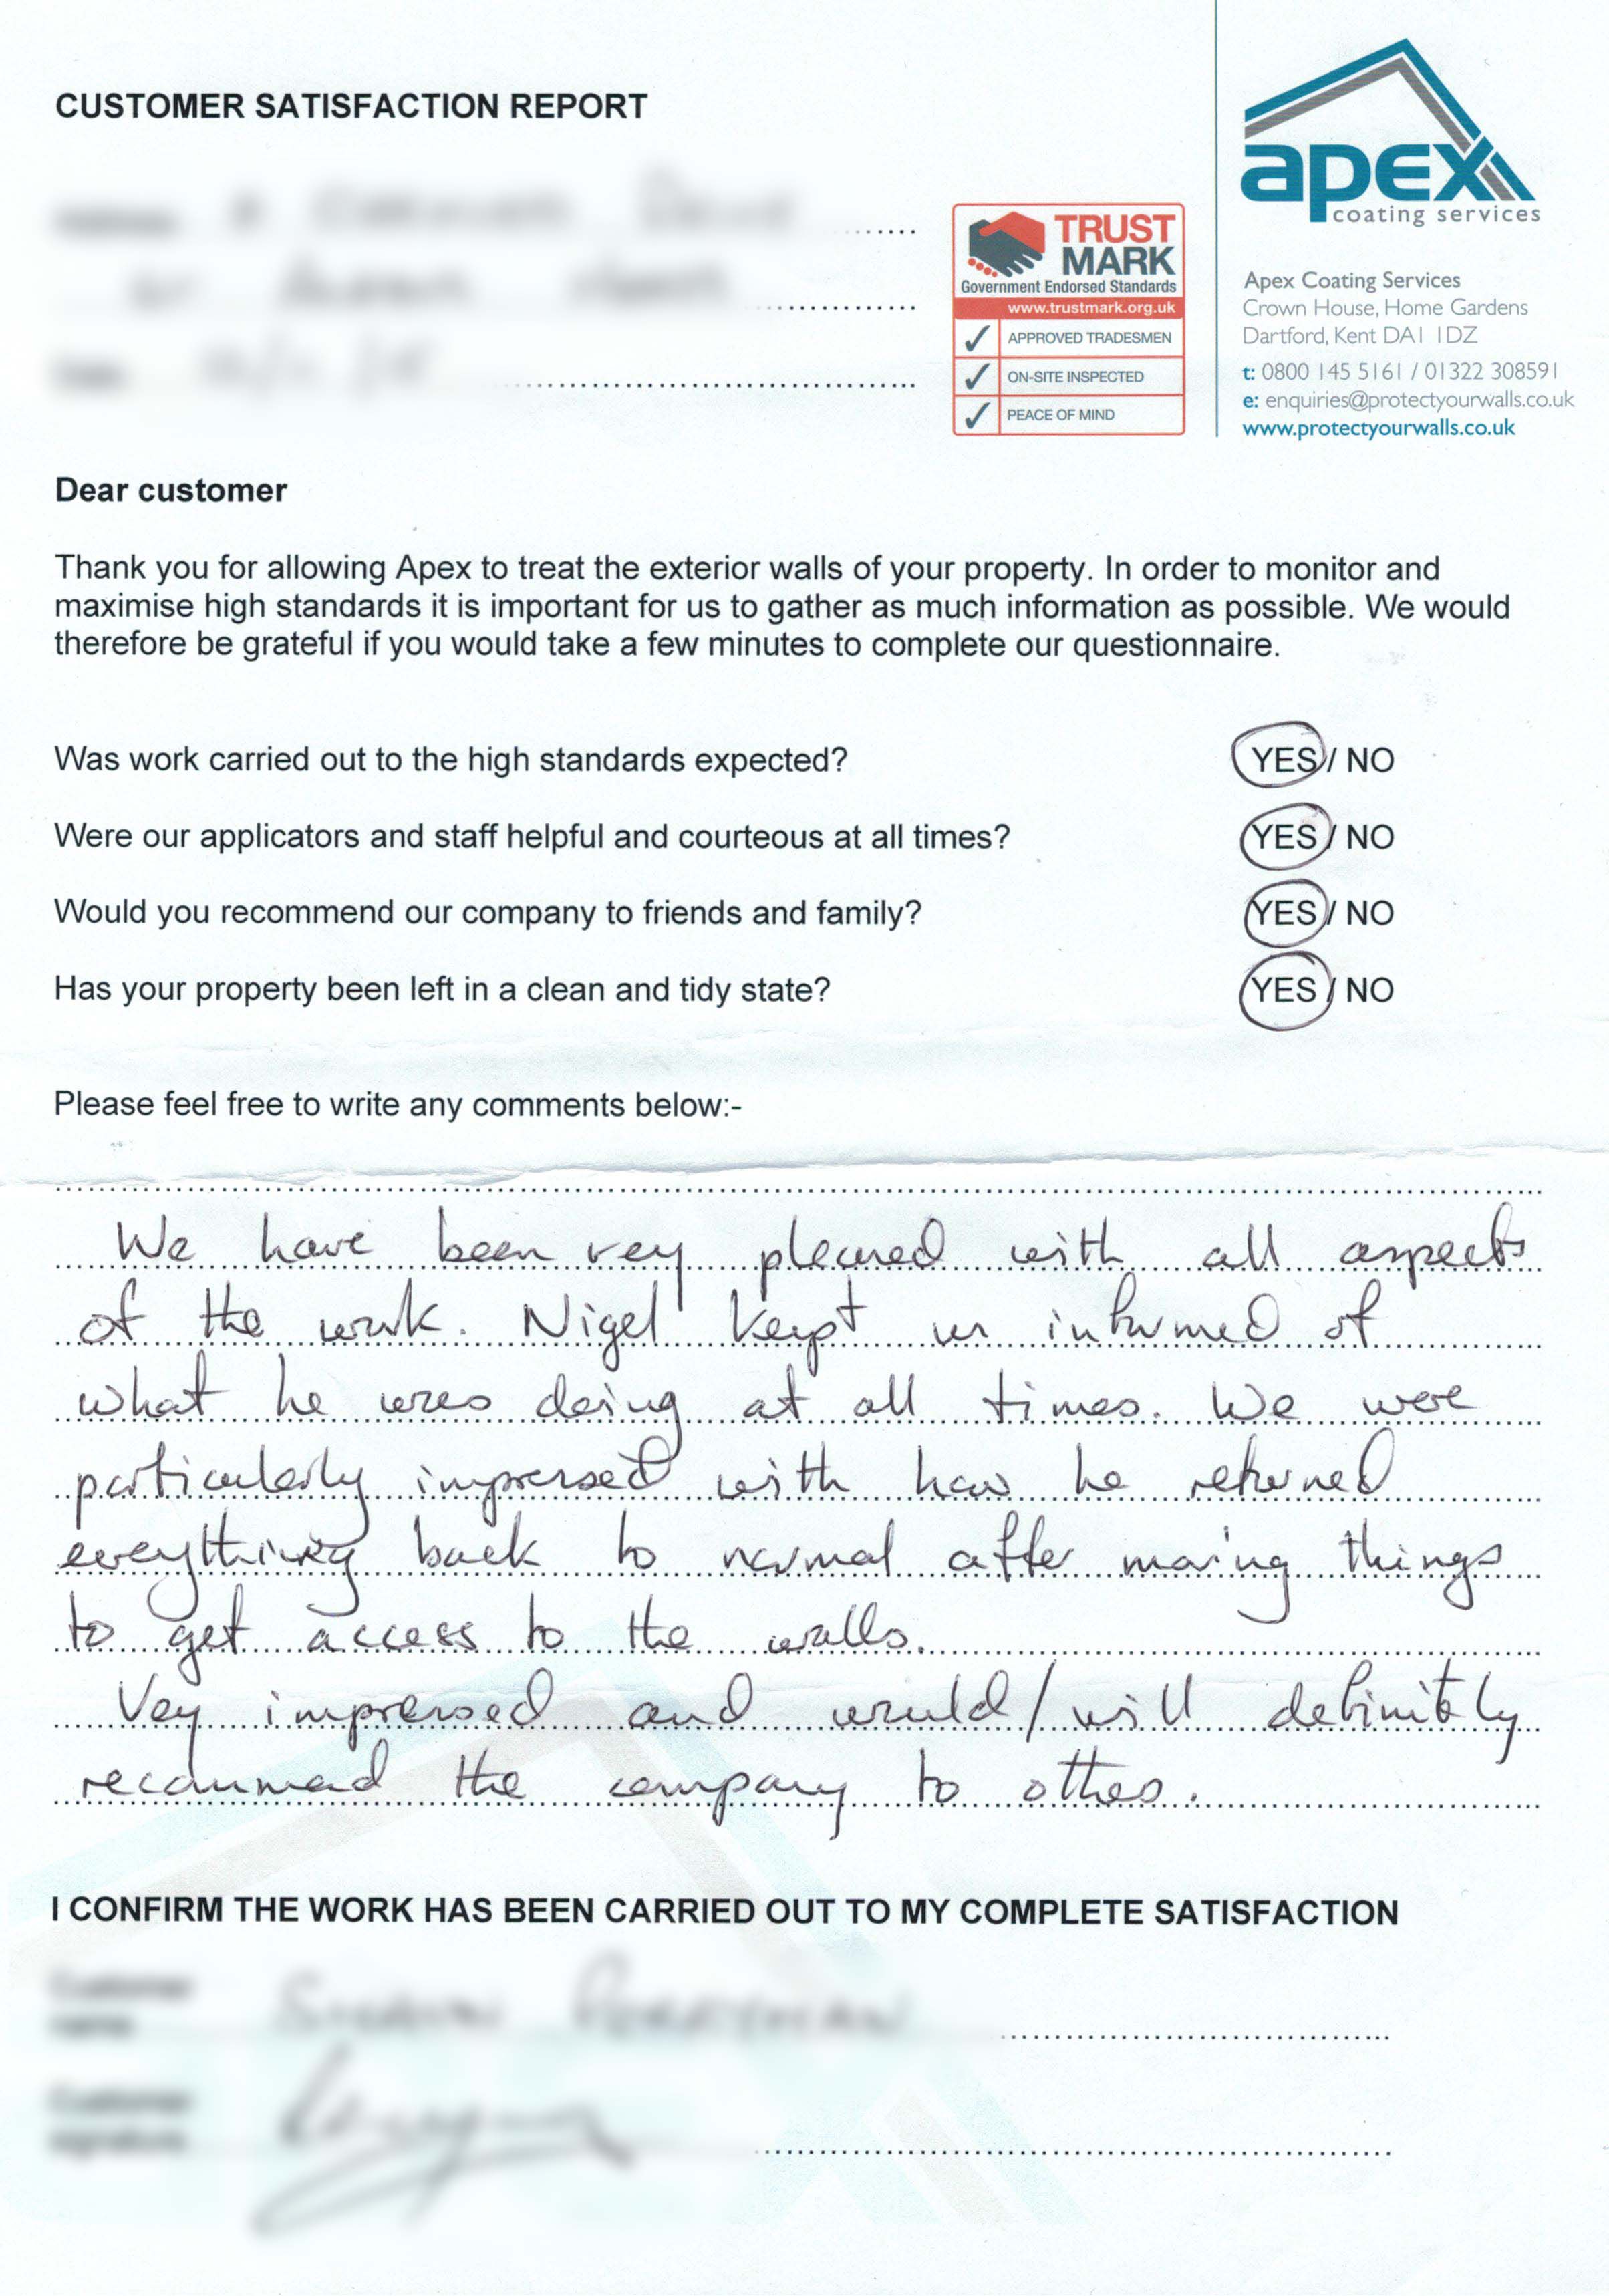 CUSTOMER SATISFACTION REPORT
apex
coating services
TRUST
MARK
Government Endorsed Standards
www.trustmark.org.uk
APPROVED TRADESMEN
ON-SITE INSPECTED
PEACE OF MIND
Apex Coating Services
Crown House, Home Gardens
Dartford, Kent DA1 1DZ
t: 0800 145 5161 / 01322 308591
e: enquiries@protectyourwalls.co.uk
www.protectyourwalls.co.uk
Dear customer
Thank you for allowing Apex to treat the exterior walls of your property. In order to monitor and
maximise high standards it is important for us to gather as much information as possible. We would
therefore be grateful if you would take a few minutes to complete our questionnaire.
Was work carried out to the high standards expected? YES / NO
Were our applicators and staff helpful and courteous at all times? YES / NO
Would you recommend our company to friends and family? YES / NO
Has your property been left in a clean and tidy state? YES / NO
Please feel free to write any comments below:-
We have been very pleased with all aspects
of the work. Nigel kept us informed of
what he was doing at all times. We were
particularly impressed with how he returned
everything back to normal after moving things
to get access to the walls.
Very impressed and would/will definitely
recommend the company to others.
I CONFIRM THE WORK HAS BEEN CARRIED OUT TO MY COMPLETE SATISFACTION